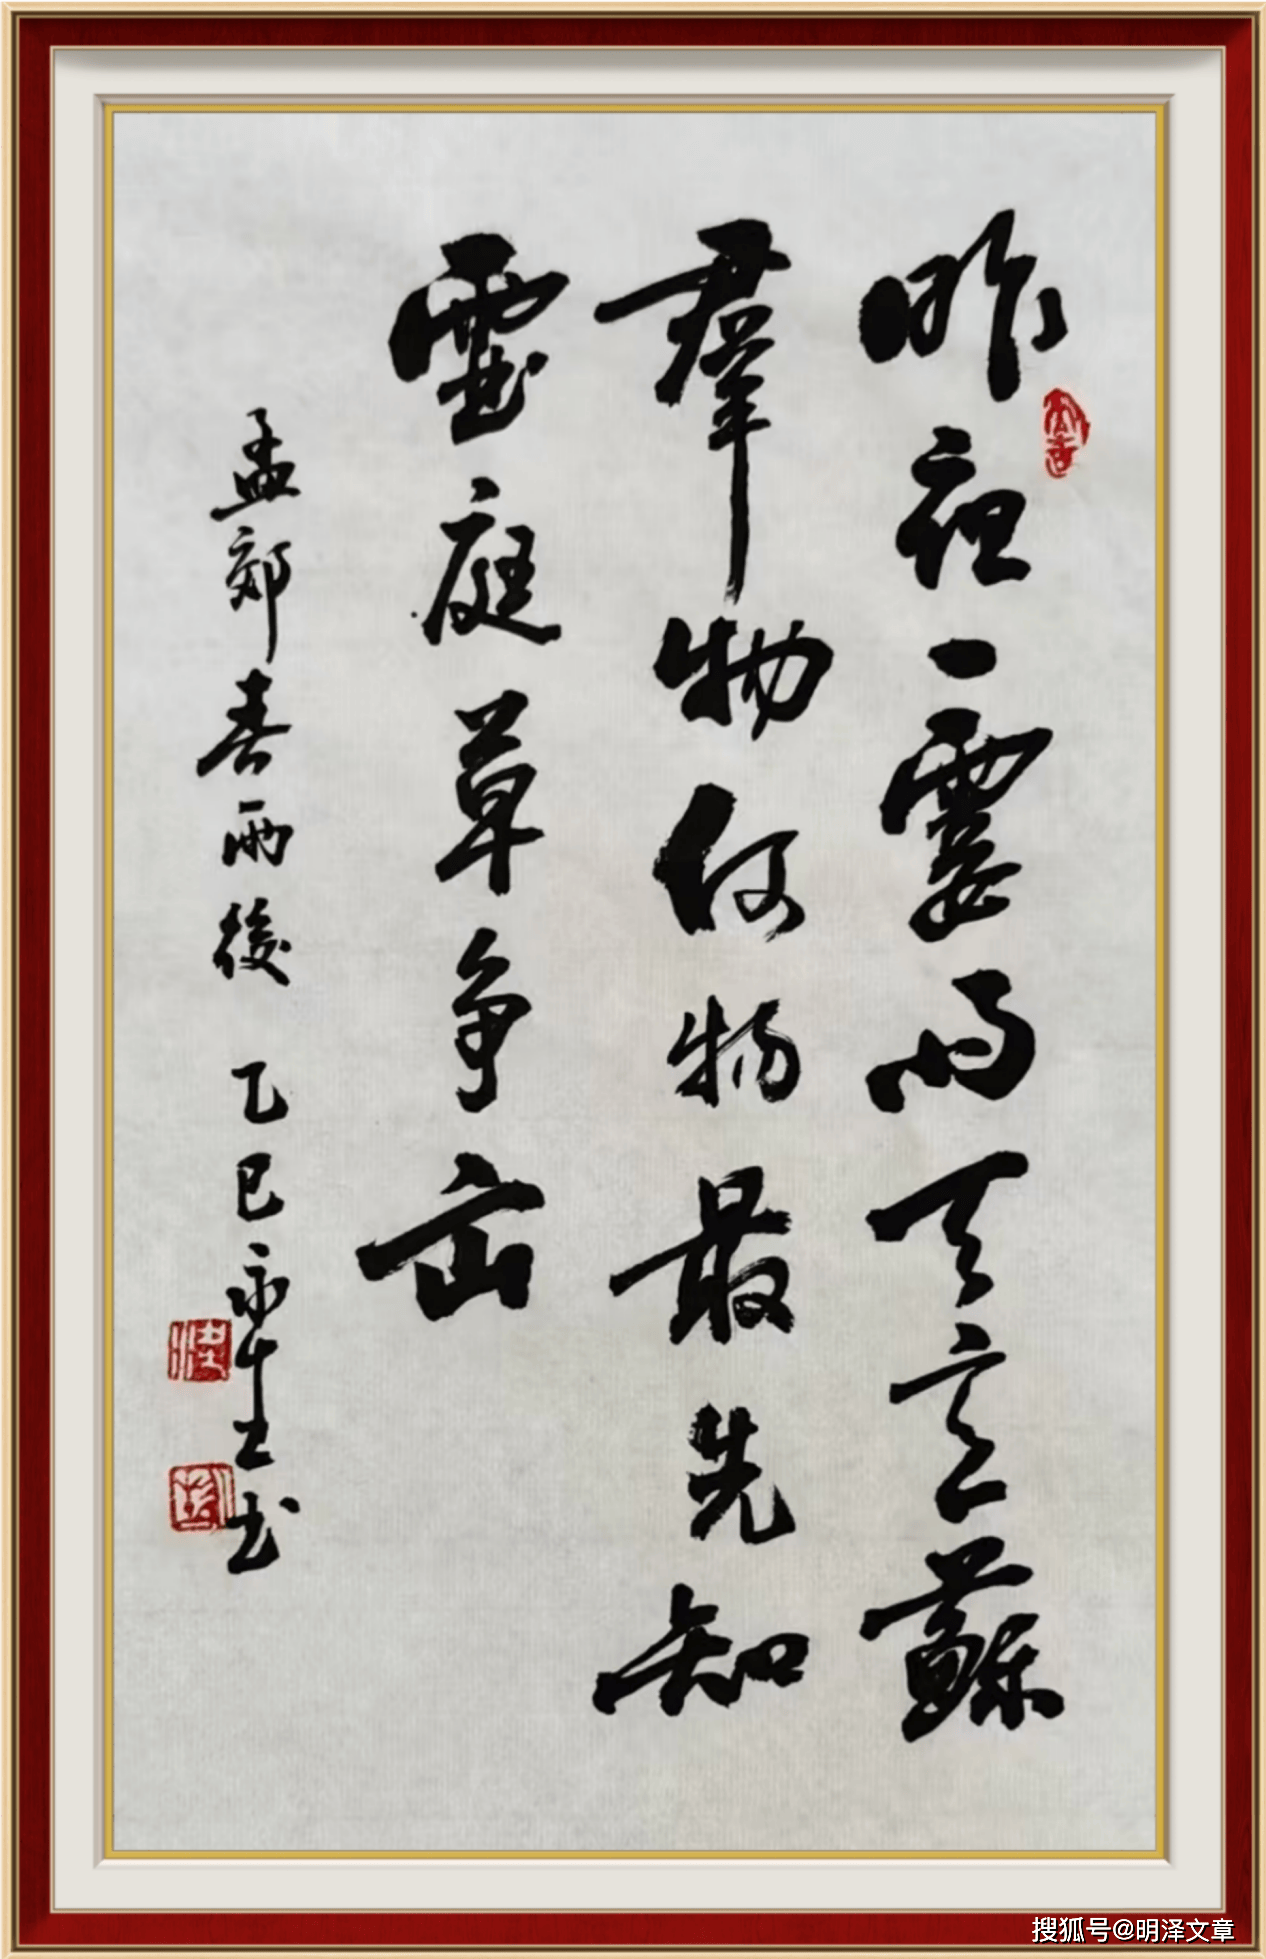 昨夜一霎雨天意蘇
羣物何物最先知
虚庭草争出
孟郊春雨後 乙巳永生书
搜狐号@明泽文章